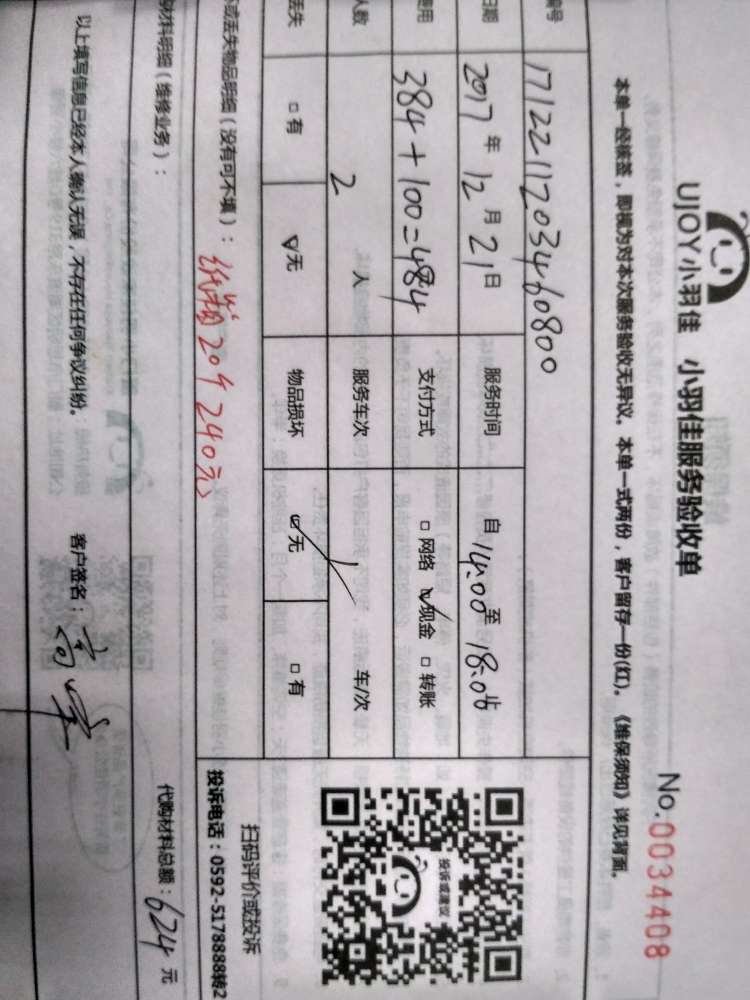 UJOY小羽佳 小羽佳服务验收单
No.0034408
本单一经核签，即视为对本次服务验收无异议。本单一式两份，客户留存一份(红)。《维保须知》详见背面。
编号 1712211203460800
日期 2017年12月21日 服务时间 自14:00至18:00
费用 384+100=484 支付方式 □网络 ☑现金 □转账
人数 2人 服务车次 1 车/次
丢失 □有 ☑无 物品损坏 ☑无 □有
或丢失物品明细（没有可不填）： 纸箱20个240元
投诉或建议
扫码评价或投诉
投诉电话：0592-5178888转2
材料明细（维修业务）：
代购材料总额：624元
以上填写信息已经本人确认无误，不存在任何争议纠纷。 客户签名：